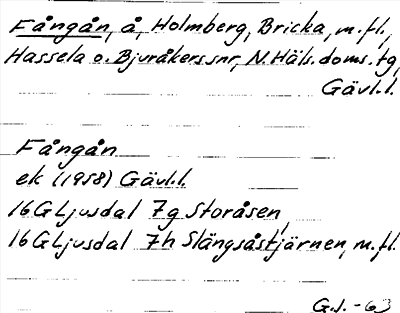 Fångån, å, Holmberg, Bricka, m.fl.,
Hassela o. Bjuråkers snr, N. Häls. doms. tg,
Gävl.l.
Fångån
ek (1958) Gävl.l.
16G Ljusdal 7g Storåsen,
16G Ljusdal 7h Slängsåstjärnen, m.fl.
G.J. -63